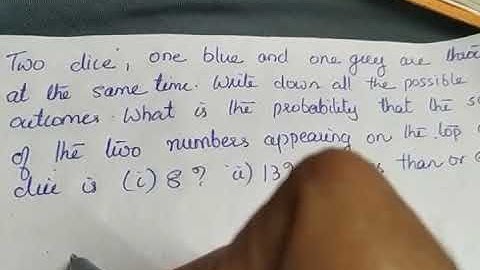 Two dice, one blue and one grey are
at the same time. Write down all the possible
outcomes. What is the probability that the
of the two numbers appearing on the top
dice is (i) 8? ii) 13? than or